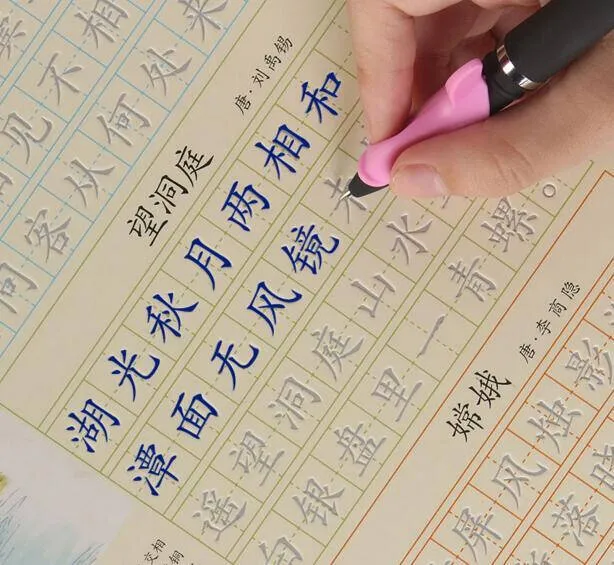 见不相
问客从何处来
望洞庭
唐·刘禹锡
湖光秋月两相和
潭面无风镜未
遥望洞庭山水
白银盘里一青螺。
嫦娥
唐·李商隐
屏风烛影
落晓
交相
铜